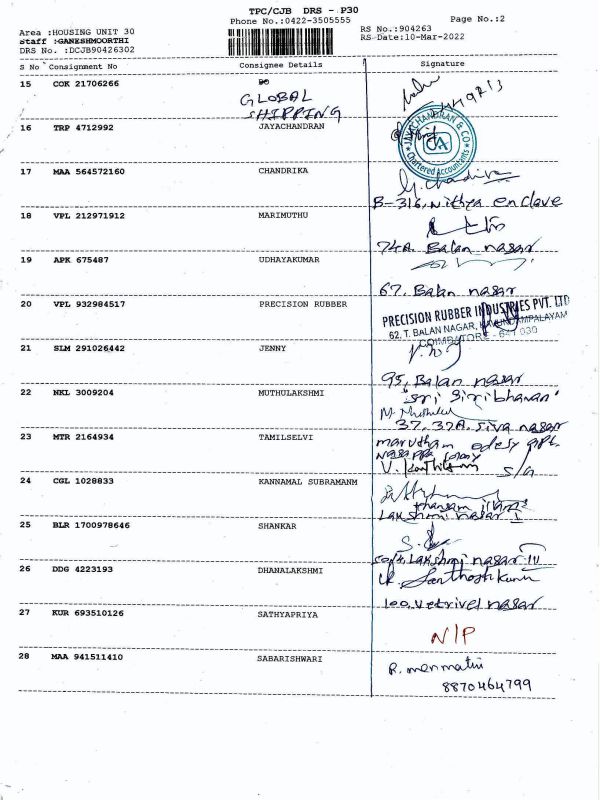 TPC/CJB DRS - P30
Phone No.:0422-3505555
Page No.:2
Area :HOUSING UNIT 30
RS No.:904263
staff :GANESHMOORTHI
RS-Date:10-Mar-2022
DRS No. :DCJB90426302
S No Consignment No Consignee Details Signature
15 COK 21706266
GLOBAL
SHIPPING
16 TRP 4712992 JAYACHANDRAN
JAYACHANDRAN & CO
CA
Chartered Accountants
17 MAA 564572160 CHANDRIKA
B-316, Nithya enclave
18 VPL 212971912 MARIMUTHU
74A. Balan nagar
19 APK 675487 UDHAYAKUMAR
67. Balan nagar
20 VPL 932984517 PRECISION RUBBER
PRECISION RUBBER INDUSTRIES PVT. LTD
62, T. BALAN NAGAR,
COIMBATORE - 641 030
21 SLM 291026442 JENNY
95, Balan nagar
22 NKL 3009204 MUTHULAKSHMI
'Sri Siribhavan'
37. 37A. Siva nagar
23 MTR 2164934 TAMILSELVI
marutham
24 CGL 1028833 KANNAMAL SUBRAMANM
Lakshmi nagar I
25 BLR 1700978646 SHANKAR
Lakshmi nagar IV
26 DDG 4223193 DHANALAKSHMI
100, Vetrivel nagar
27 KUR 693510126 SATHYAPRIYA
N/P
28 MAA 941511410 SABARISHWARI
8870464799